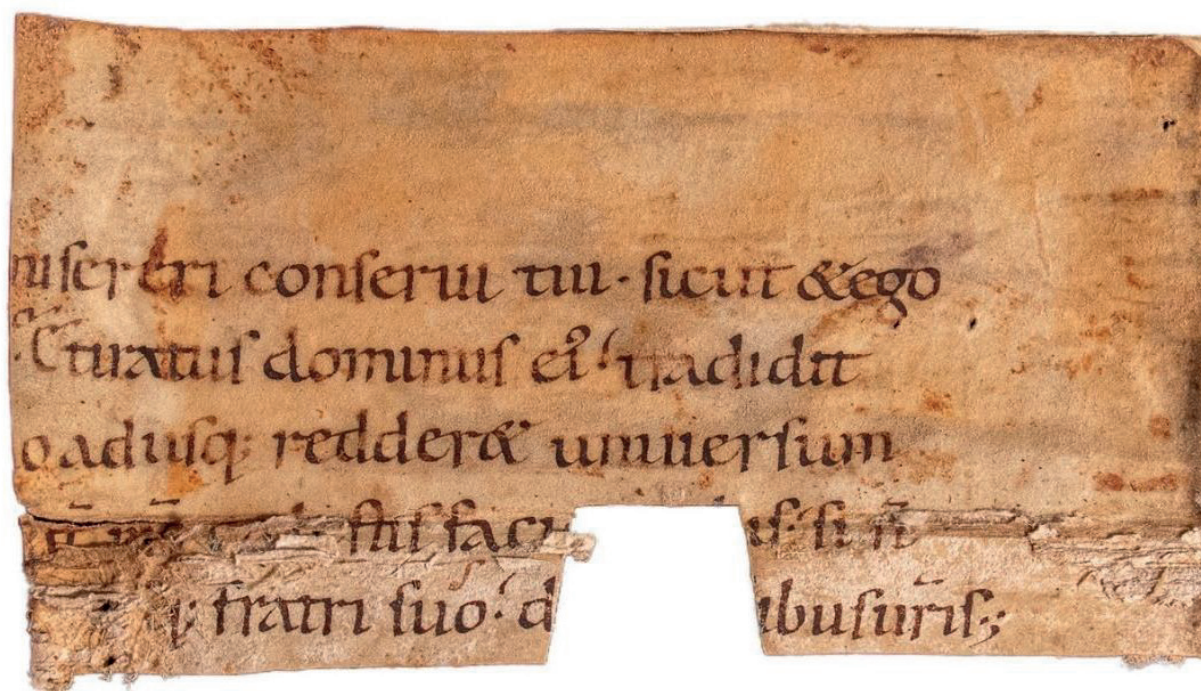 miſereri conſerui tui · ſicut & ego
Et iratuſ dominuſ eiꝰ · tradidit
o aduſq; redder& uniuerſum
ñ ur̃ ſtiſ faci uobiſ · ſi ñ
q; fratri ſuo · d ibuſ ur̃iſ ;